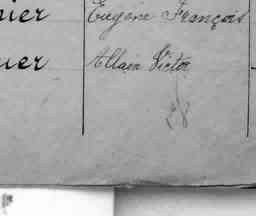 nier Eugène François
uer Allain Victor